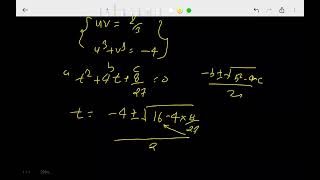 uv = 2/3
u³+v³ = -4
a b c
t² + 4t + 8/27 = 0
-b ± √b²-4ac / 2a
t = -4 ± √16-4× 8/27 / 2